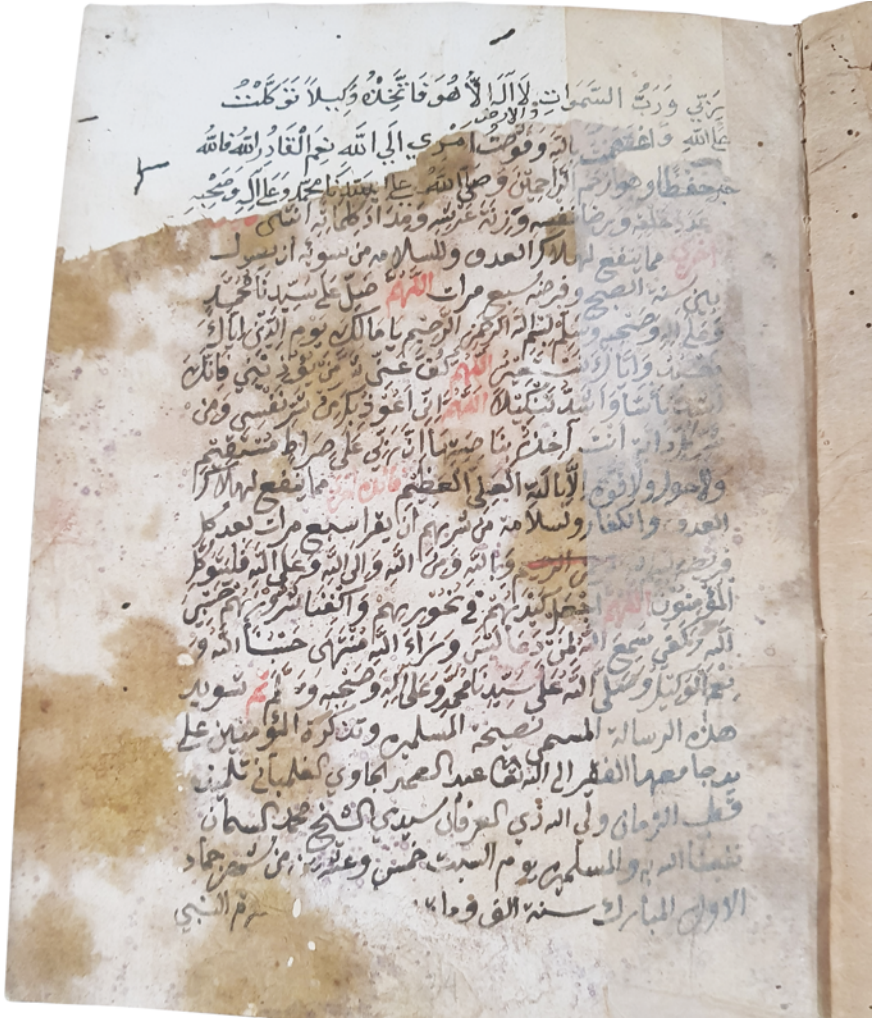 ربي ورب السموات لا اله الا هو فاتخذه وكيلا توكلت
والارض
على الله واعتصمت بالله وفوضت امري الى الله نعم القادر الله فالله
خير حفظا وهو ارحم الراحمين وصلى الله على سيدنا محمد وعلى اله وصحبه
عدد خلقه ورضا نفسه وزنة عرشه ومداد كلماته انتهى
اخرى مما ينفع لهلاك العدو وللسلامه من سوئه ان يقول
بين سنة الصبح وفرضه سبع مرات اللهم صل على سيدنا محمد
وعلى اله وصحبه وسلم بسم الله الرحمن الرحيم يا مالك يوم الدين اياك
نعبد واياك نستعين اللهم كف عني من يؤذيني فانك
اشد بأسا واشد تنكيلا اللهم اني اعوذ بك من شر نفسي ومن
شر كل دابة انت اخذ بناصيتها ان ربي على صراط مستقيم
ولا حول ولا قوة الا بالله العلي العظيم فائدة اخرى مما ينفع لهلاك
العدو والكفار ولسلامة من شرهم ان يقرا سبع مرات بعد كل
وبالله ومن الله والى الله وعلى الله فليتوكل
المؤمنون اللهم اجعل كيدهم في نحورهم واكفنا شرورهم حسبي
الله وكفى سمع الله لمن دعا ليس وراء الله منتهى حسبنا الله و
نعم الوكيل وصلى الله على سيدنا محمد وعلى اله وصحبه وسلم تم تسويد
هذه الرسالة المسمى نصيحة المسلمين وتذكرة المؤمنين على
يد جامعها الفقير الى الله تعا عبد الصمد الجاوي الفلمباني تلميذ
قطب الزمان ولي الله ذي العرفان سيدي الشيخ محمد السمان
نفعنا الله به والمسلمين يوم السبت خمس وعشرين من شهر جماد
الاول المبارك سنة الف وماية النبي